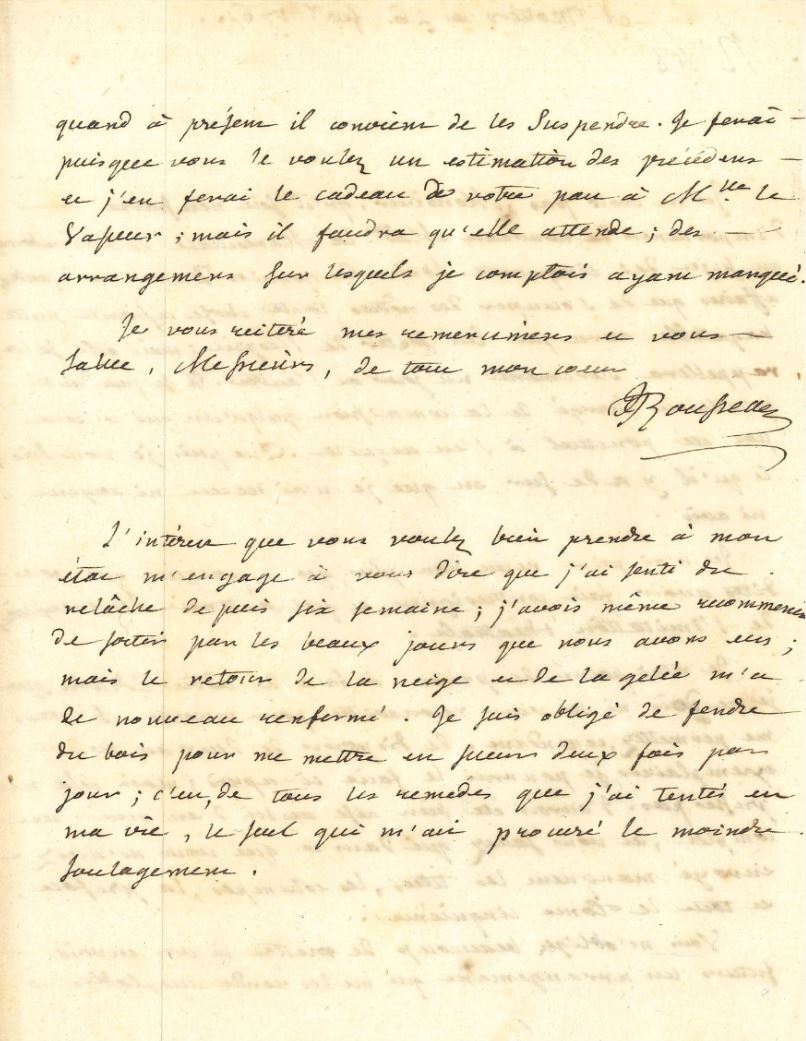 quand à présent il convient de les Suspendre. Je ferai —
puisque vous le voulez un estimation des précédens —
et j'en ferai le cadeau de votre part à Mlle le
Vasseur ; mais il faudra qu'elle attende ; des —
arrangemens sur lesquels je comptois ayant manqué.
Je vous reitére mes remercimens et vous —
salue, Messieurs, de tout mon coeur
JJRousseau
L'intéret que vous voulez bien prendre à mon
état m'engage à vous dire que j'ai senti du
relâche depuis six semaine ; j'avois même recommencé
de sortir par les beaux jours que nous avons eus ;
mais le retour de la neige et de la gelée m'a
de nouveau renfermé. Je suis obligé de fendre
du bois pour me mettre en sueur deux fois par
jour ; c'est, de tous les remédes que j'ai tentés en
ma vie, le seul qui m'ait procuré le moindre
soulagement.